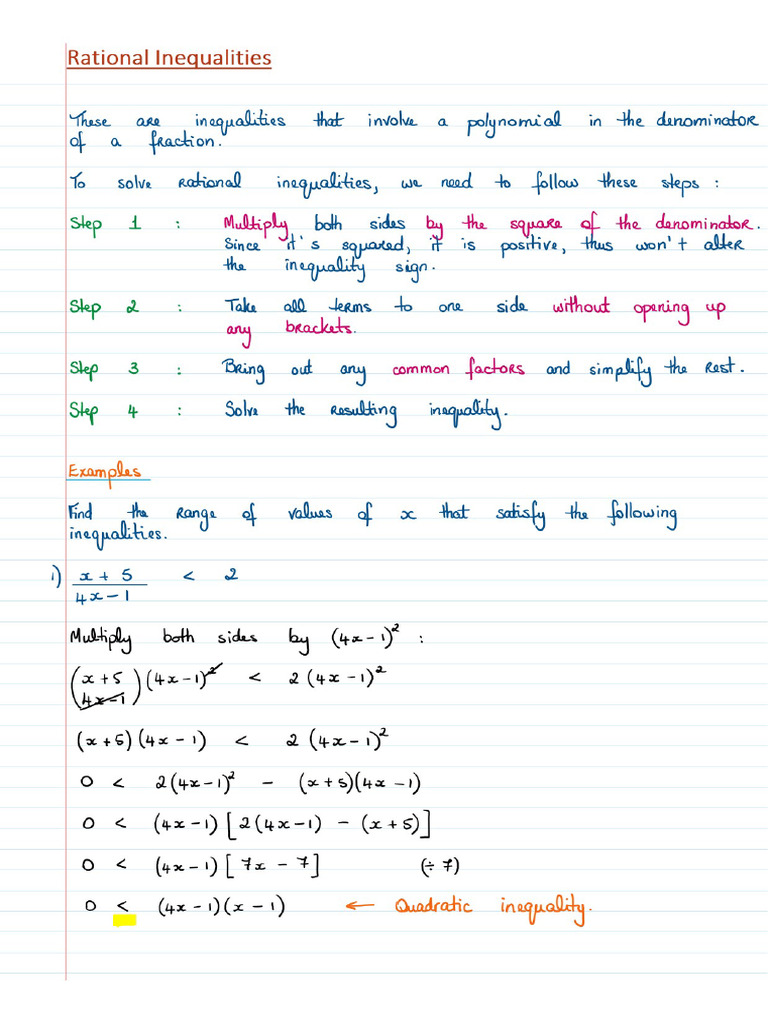 Rational Inequalities
These are inequalities that involve a polynomial in the denominator
of a fraction.
To solve rational inequalities, we need to follow these steps :
Step 1 : Multiply both sides by the square of the denominator.
Since it's squared, it is positive, thus won't alter
the inequality sign.
Step 2 : Take all terms to one side without opening up
any brackets.
Step 3 : Bring out any common factors and simplify the rest.
Step 4 : Solve the resulting inequality.
Examples
Find the range of values of x that satisfy the following
inequalities.
1) x + 5 < 2
4x - 1
Multiply both sides by (4x - 1)² :
(x + 5) (4x - 1)² < 2 (4x - 1)²
4x - 1
(x + 5) (4x - 1) < 2 (4x - 1)²
0 < 2(4x - 1)² - (x + 5)(4x - 1)
0 < (4x - 1) [2(4x - 1) - (x + 5)]
0 < (4x - 1) [7x - 7] (÷ 7)
0 < (4x - 1)(x - 1) ← Quadratic inequality.